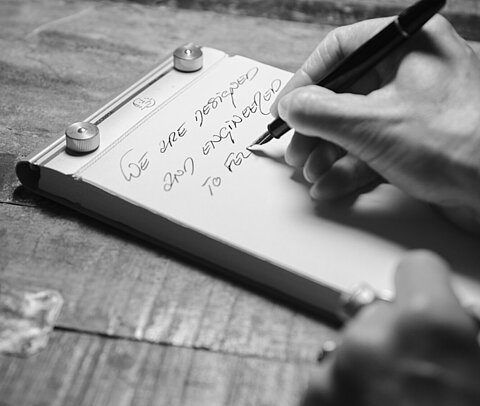 WE ARE DESIGNED
AND ENGINEERED
TO FEE